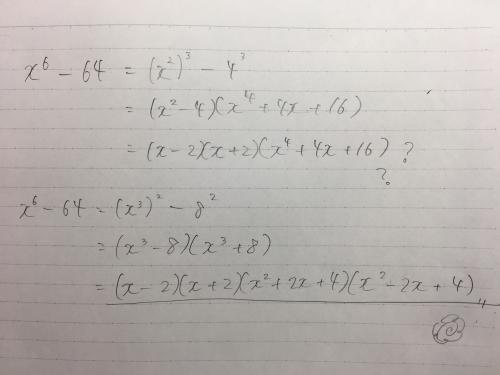 x⁶ - 64 = (x²)³ - 4³
= (x² - 4)(x⁴ + 4x + 16)
= (x - 2)(x + 2)(x⁴ + 4x + 16) ?
?
x⁶ - 64 = (x³)² - 8²
= (x³ - 8)(x³ + 8)
= (x - 2)(x + 2)(x² + 2x + 4)(x² - 2x + 4)